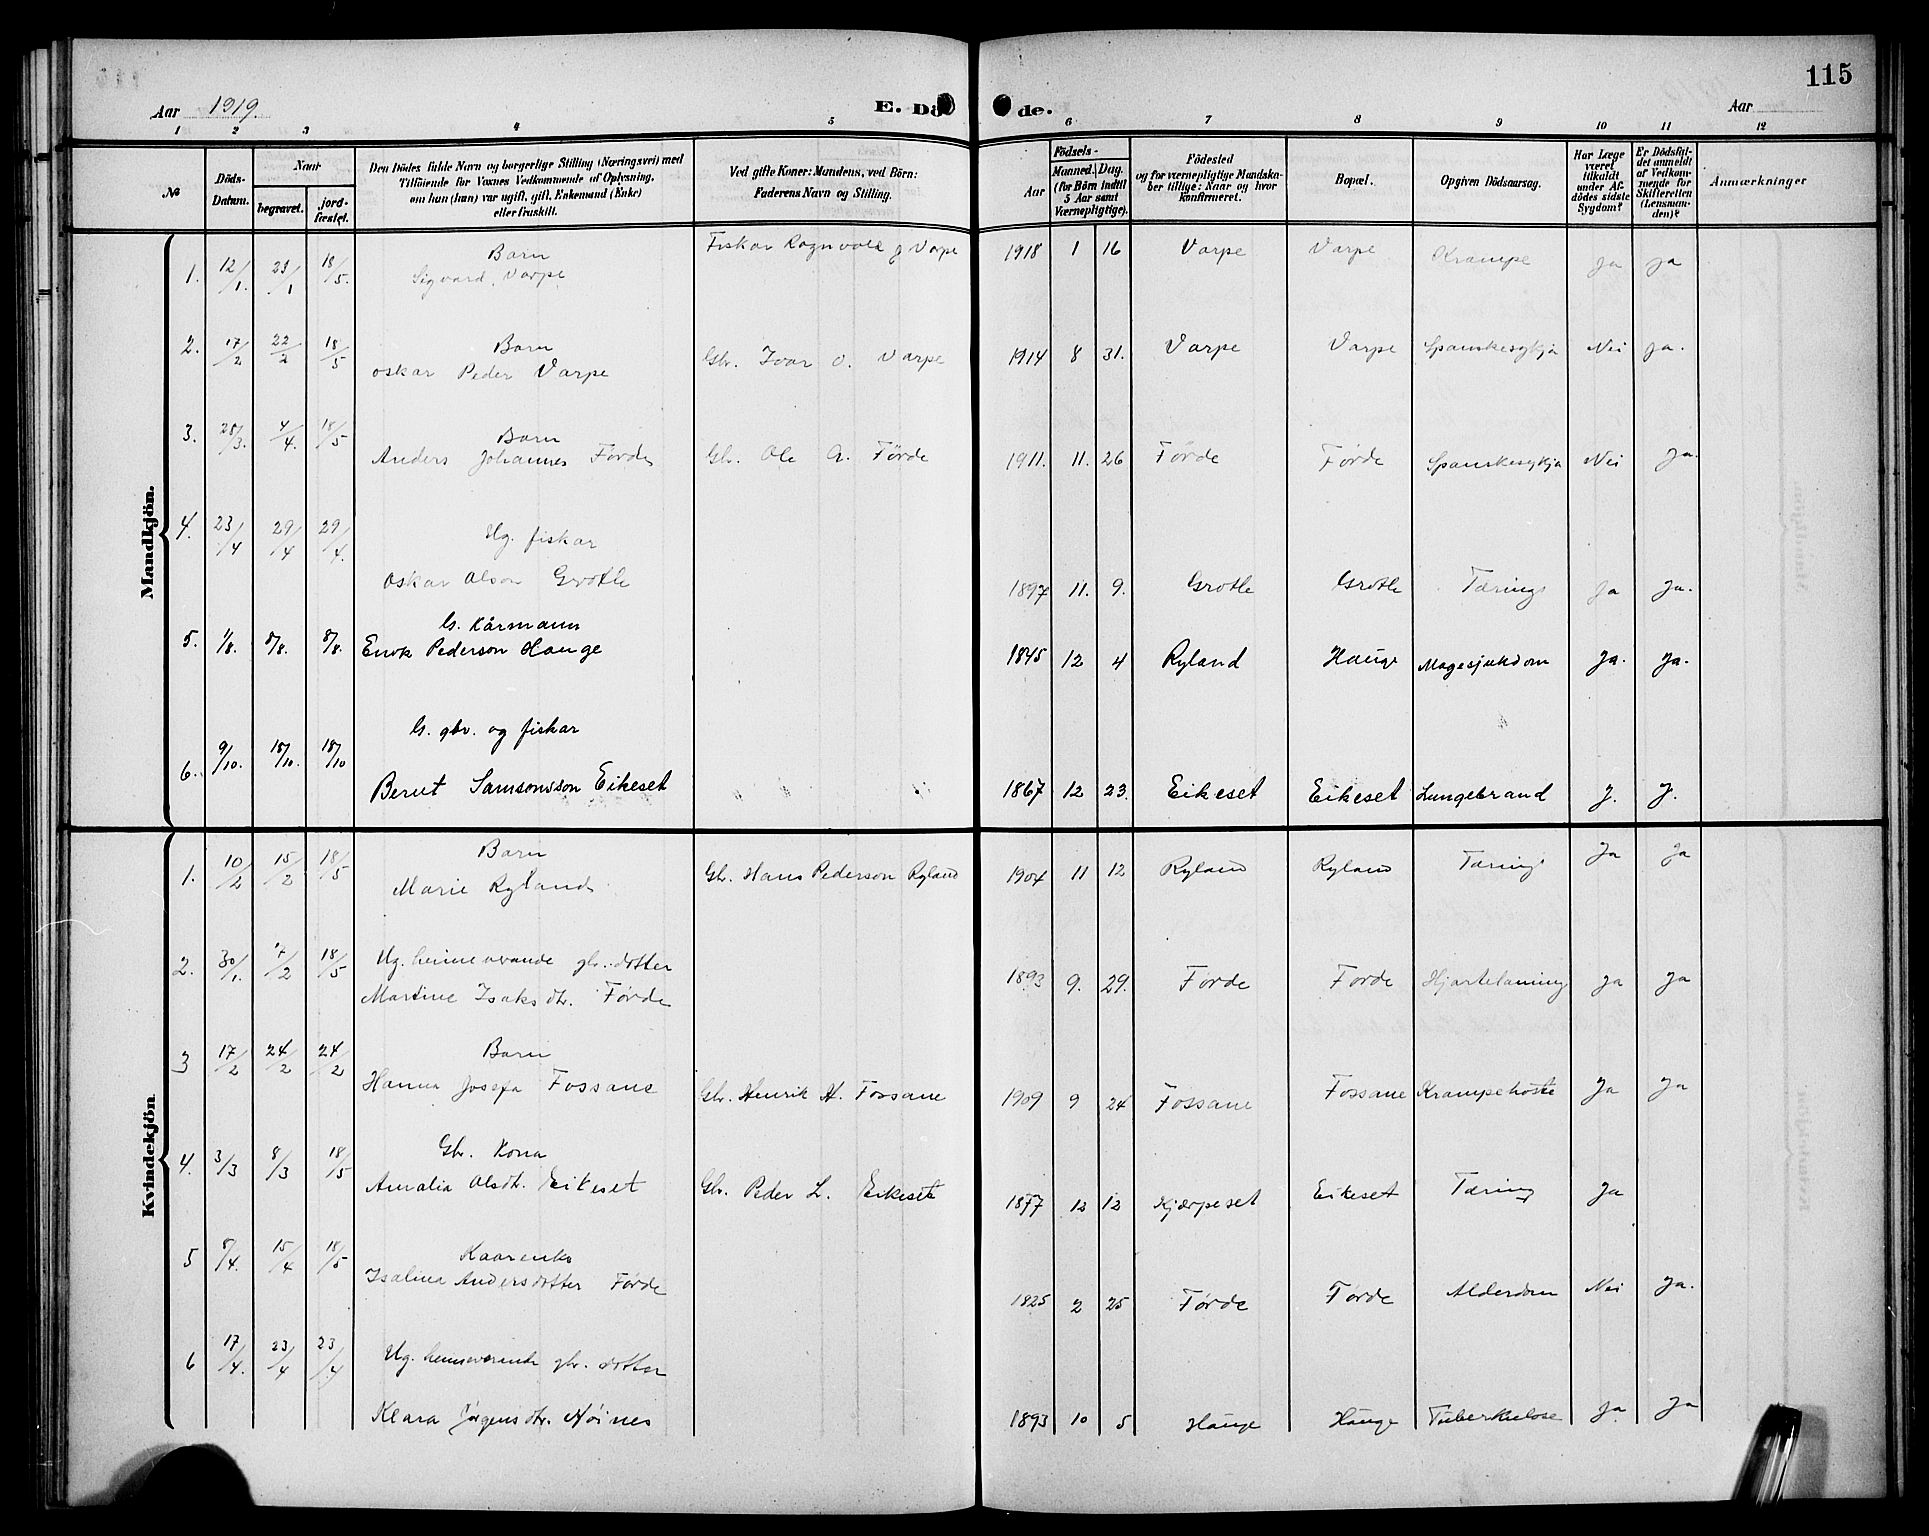 115
Aar 1919. E. Dö de. Aar
1 2 3 4 5 6 7 8 9 10 11 12
№ | Döds-Datum. | Naar begravet. | jord-fæstet. | Den Dödes fulde Navn og borgerlige Stilling (Næringsvei) med Tilföiende for Voxnes Vedkommende af Oplysning, om hun (han) var ugift, gift, Enkemand (Enke) eller fraskilt. | Ved gifte Koner: Mandens, ved Börn: Faderens Navn og Stilling. | Födsels- Aar | Maaned. | Dag. (for Börn indtil 5 Aar samt Værnepligtige). | Födested og for værnepligtige Mandskaber tillige: Naar og hvor konfirmeret. | Bopæl. | Opgiven Dödsaarsag. | Har Læge været tilkaldt under Afdödes sidste Sygdom? | Er Dödsfaldet anmeldt af Vedkommende for Skifteretten (Lensmanden)? | Anmærkninger
Mandkjön.
1. 12/1. 23/1 18/5. Barn Sigvard Varpe | Fiskar Ragnvald Varpe | 1918 1 16 Varpe Varpe Krampe Ja Ja
2. 17/2 22/2 18/5 Barn Oskar Peder Varpe | Gbr. Ivar O. Varpe | 1914 8 31. Varpe Varpe Spanskesykja Nei Ja.
3. 28/3. 4/4. 18/5 Barn Anders Johannes Førde | Gbr. Ole A. Førde | 1911. 11. 26 Førde Førde Spanskesykja Nei Ja.
4. 23/4 29/4 29/4. Ug. fiskar Oskar Olson Grotle | 1897 11. 9. Grotle Grotle Tæring Ja Ja.
5. 1/8. 8/8. 8/8. G. Kårmann Enok Pederson Hauge | 1845 12 4 Ryland Hauge Magesjukdom Ja. Ja.
6. 9/10. 18/10. 18/10 G. gbr. og fiskar Berut Samsonsson Eikeset | 1867 12 23. Eikeset Eikeset Lungebrand J. J.
Kvindekjön.
1. 10/2 15/2 18/5 Barn Marie Ryland | Gbr. Hans Pederson Ryland | 1904 11 12 Ryland Ryland Tæring Ja Ja
2. 30/1. 7/2 18/5 Ug. heimeverande gbr. dotter Martine Isaksdtr. Førde | 1893 9. 29. Førde Førde Hjartelaming Ja Ja
3 17/2 24/2 24/2 Barn Hanna Josefa Fossane | Gbr. Henrik H. Fossane | 1909 9 24 Fossane Fossane Krampehoste Ja Ja
4. 3/3 8/3 18/5 Gbr. Kona Amalia Olsdtr. Eikeset | Gbr. Peder L. Eikeset | 1877 12 12 Kjærpeset Eikeset Tæring Ja
5 8/4. 15/4 18/5 Kaarenke Isalina Andersdotter Førde | 1825 2 25 Førde Førde Alderdom Nei Ja.
6 17/4. 23/4 23/4 Ug. heimeverende gbr. dotter Klara Jørgensdtr. Nøines | 1893 10 5 Hauge Hauge Tuberkulose Ja Ja